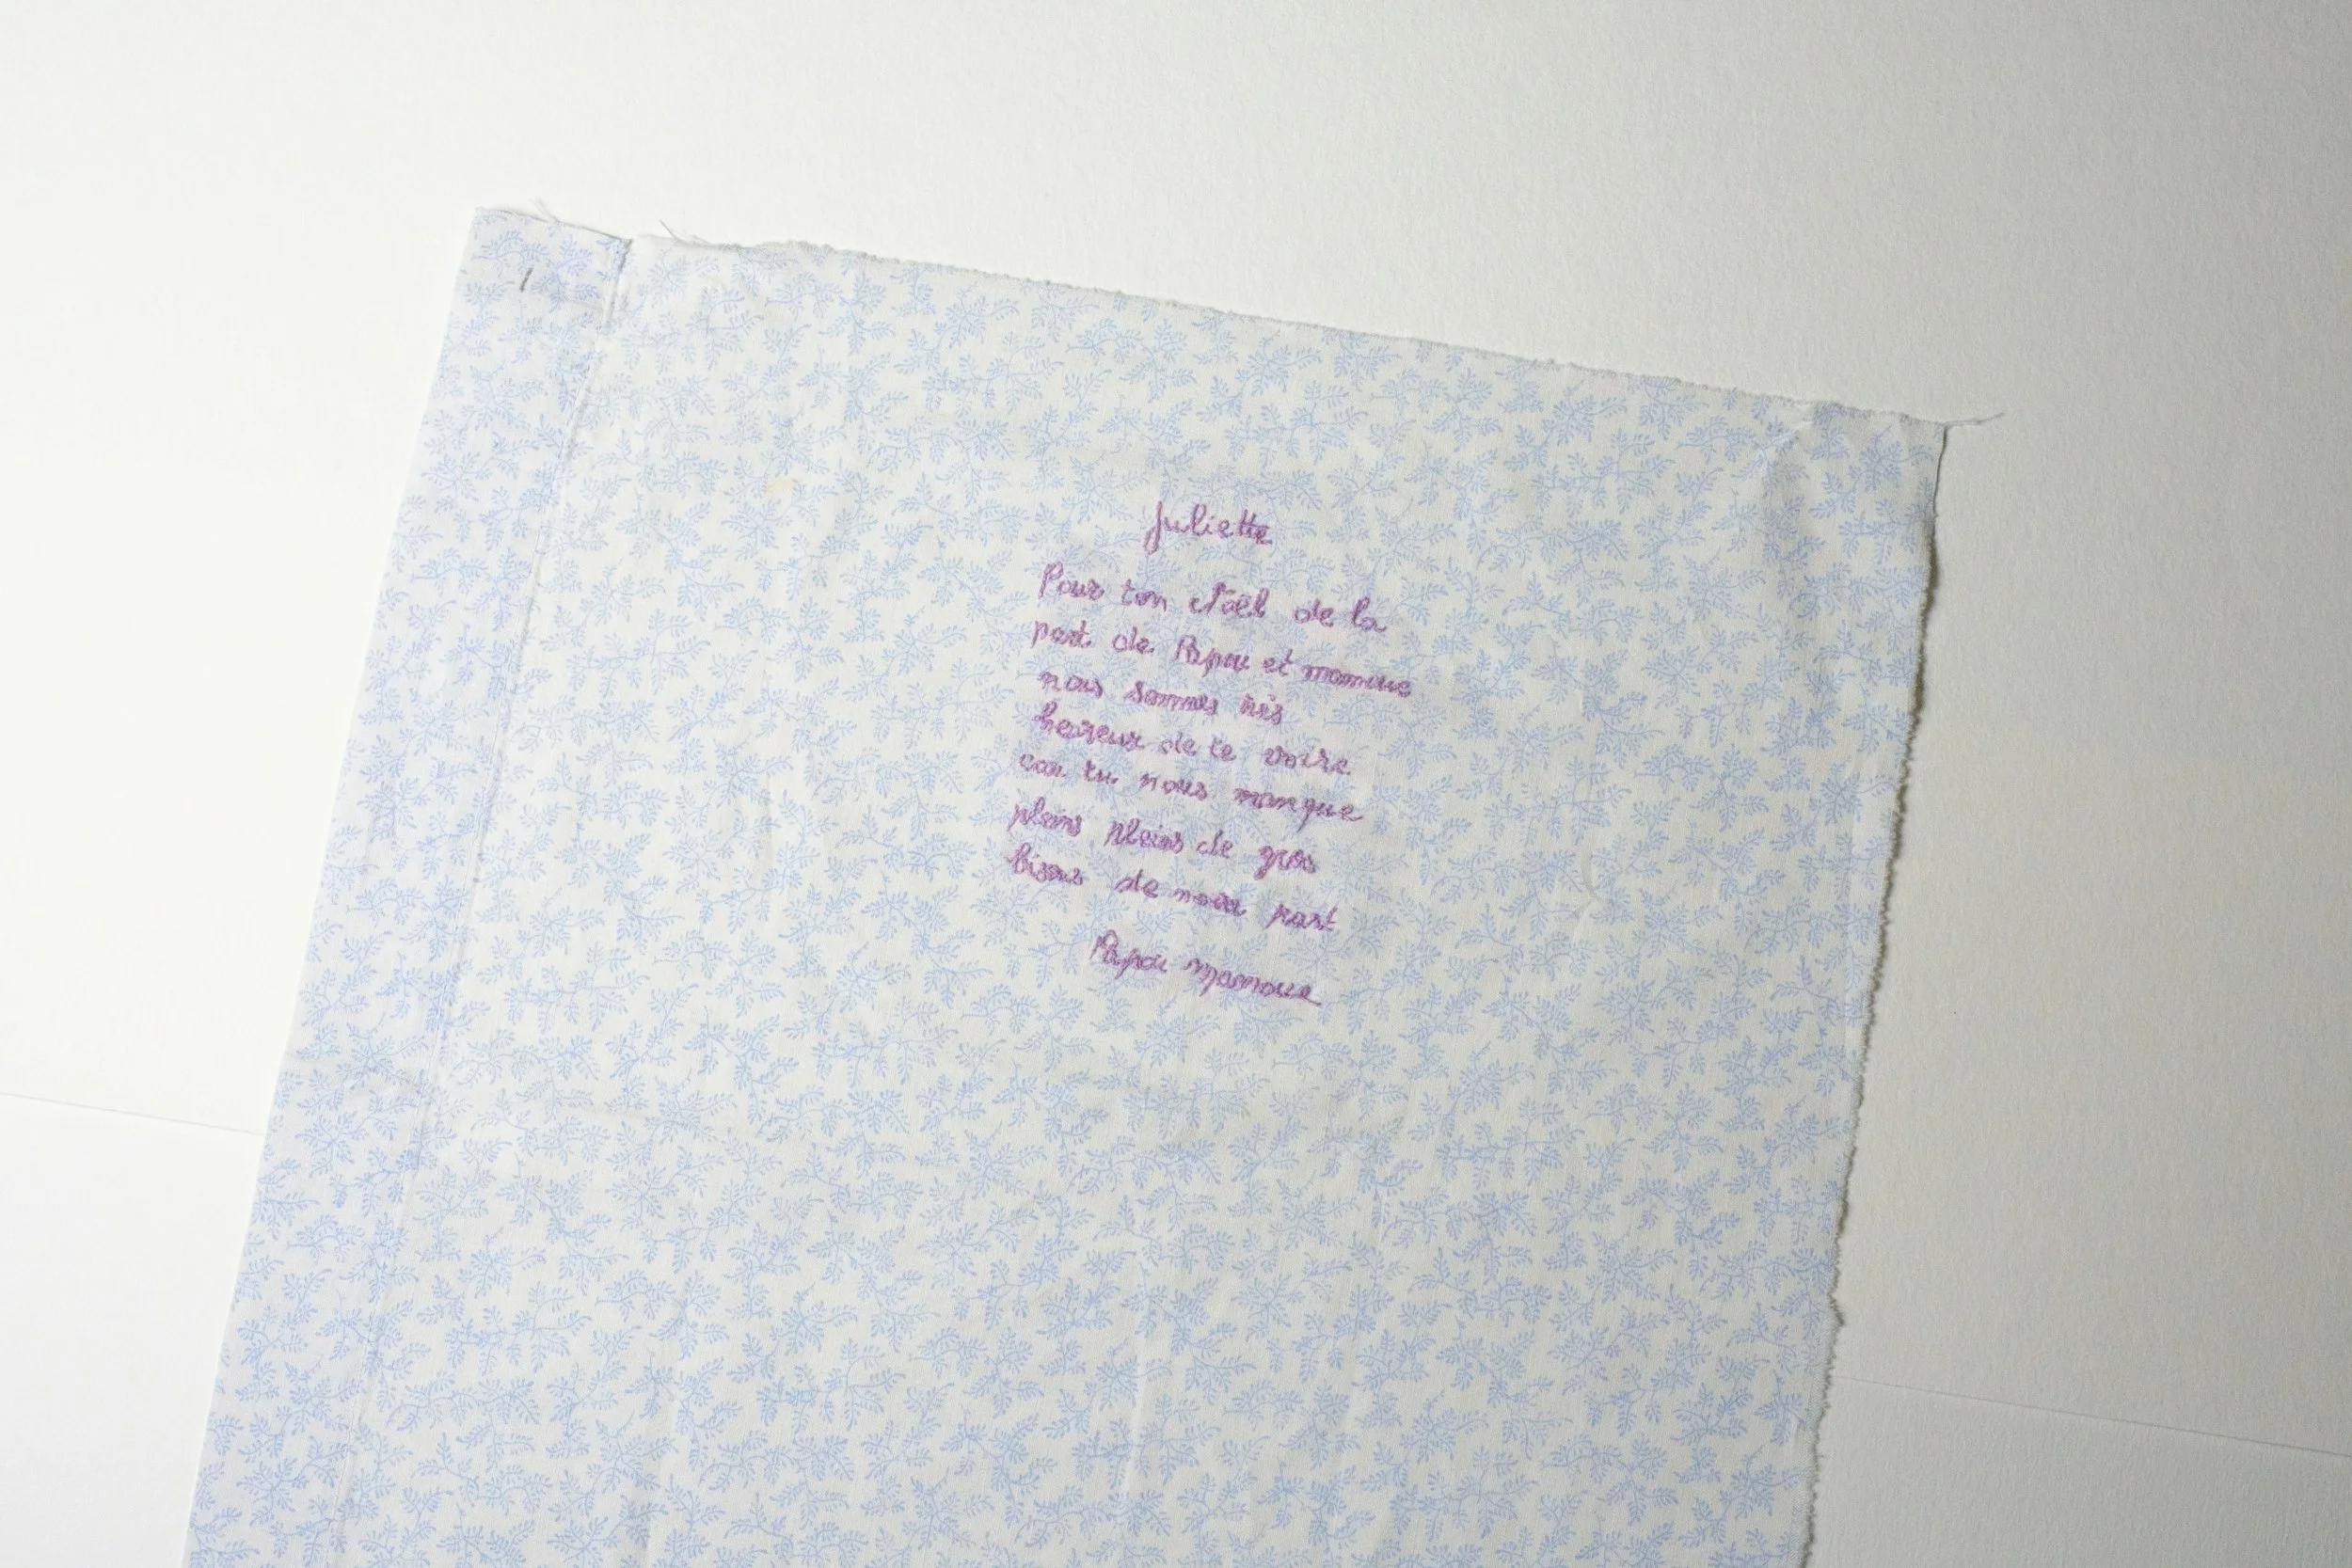 Juliette
Pour ton Noël de la
part de Papou et mamoue
nous sommes très
hereux de te voire
car tu nous manque
pleins pleins de gros
bisous de nous part
Papou mamoue